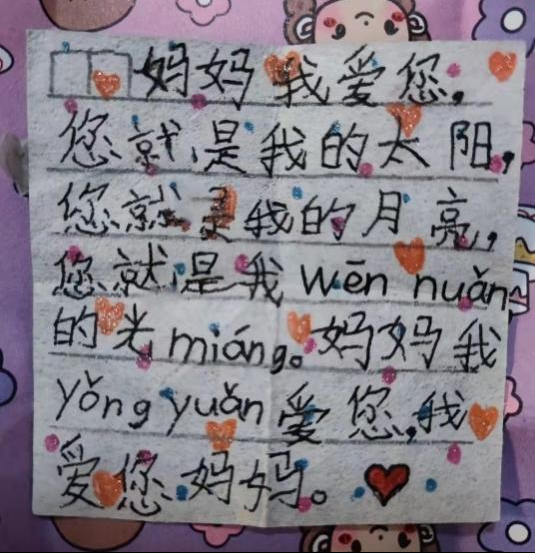 妈妈我爱您,
您就是我的太阳,
您就是我的月亮,
您就是我wēn nuǎn
的光miáng。妈妈我
yǒng yuǎn爱您,我
爱您妈妈。